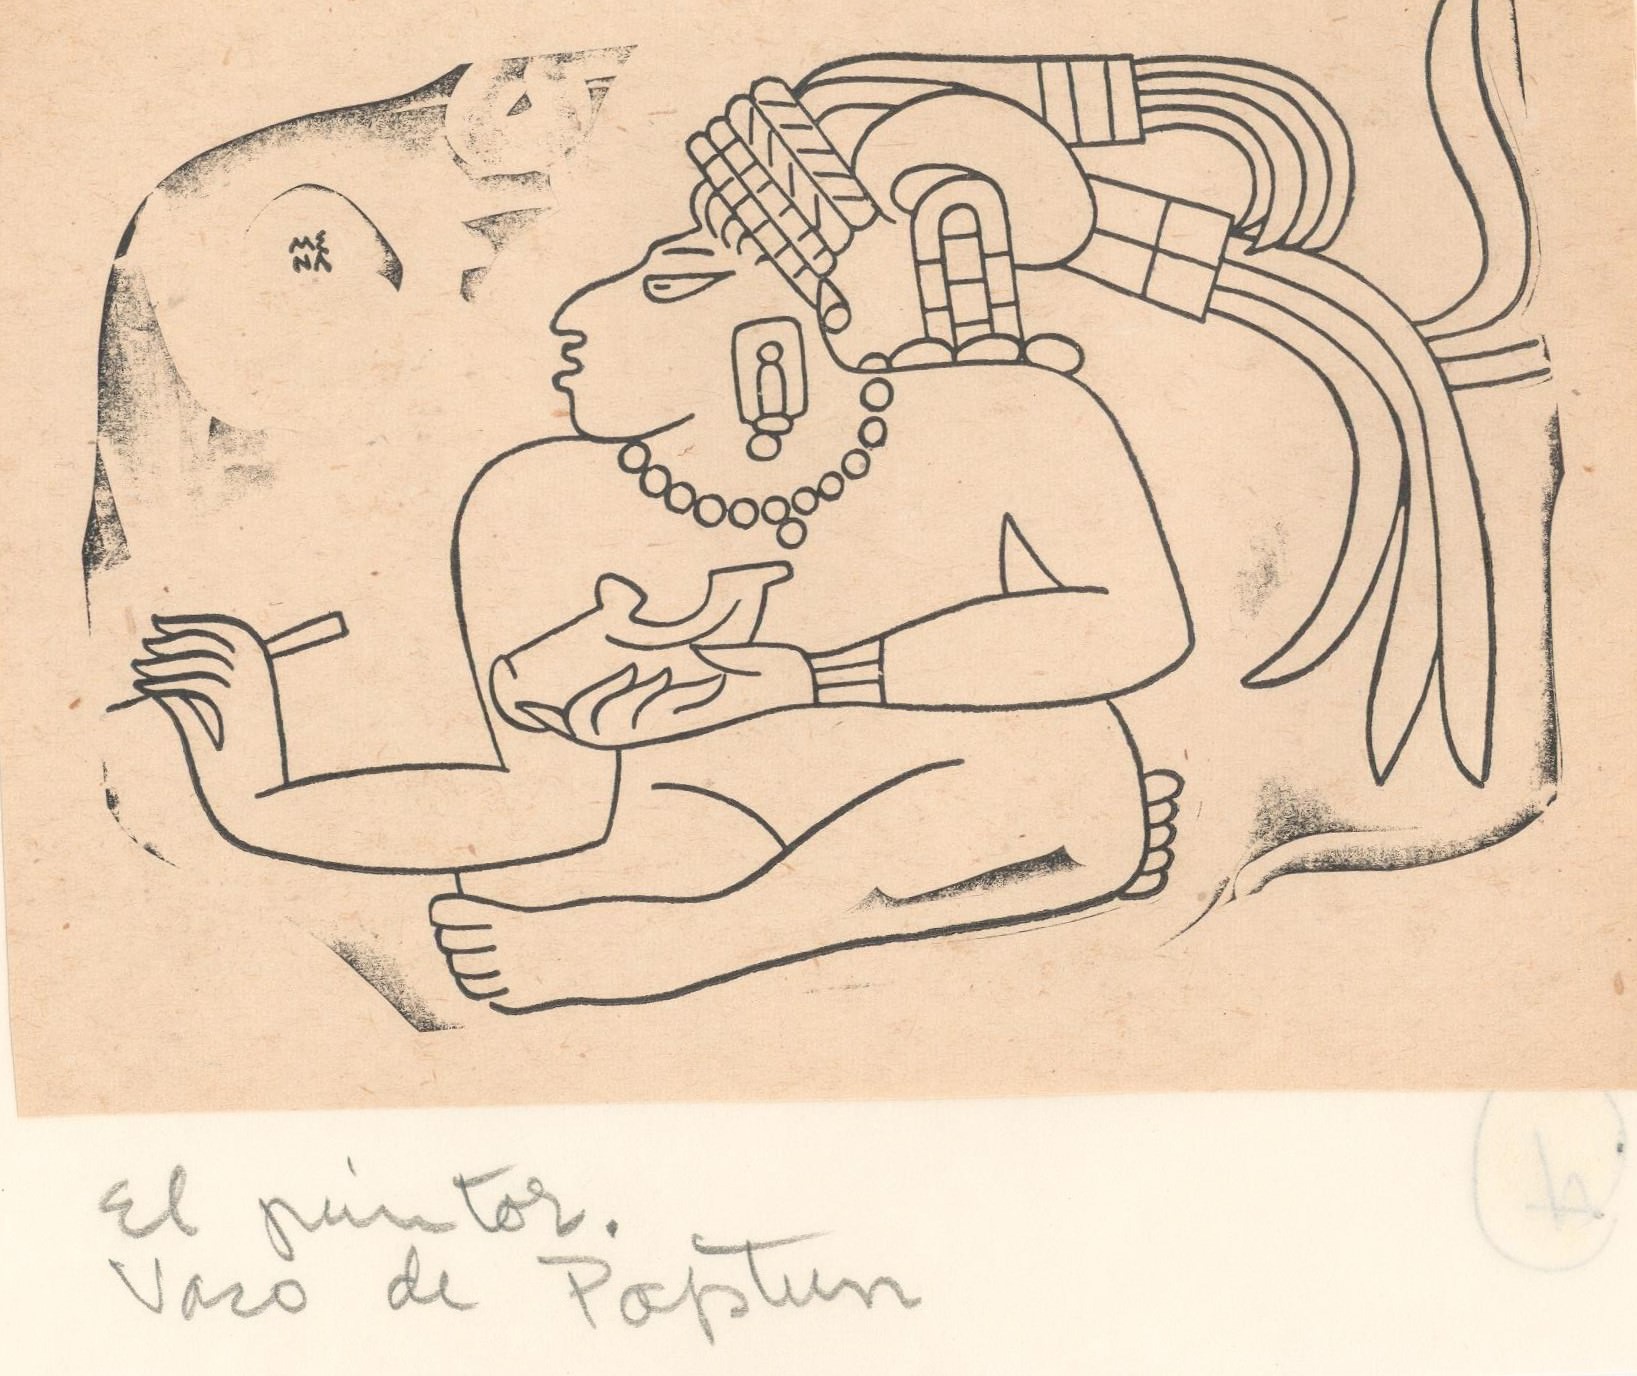 ME
NA
El pintor.
Vaso de Poptun